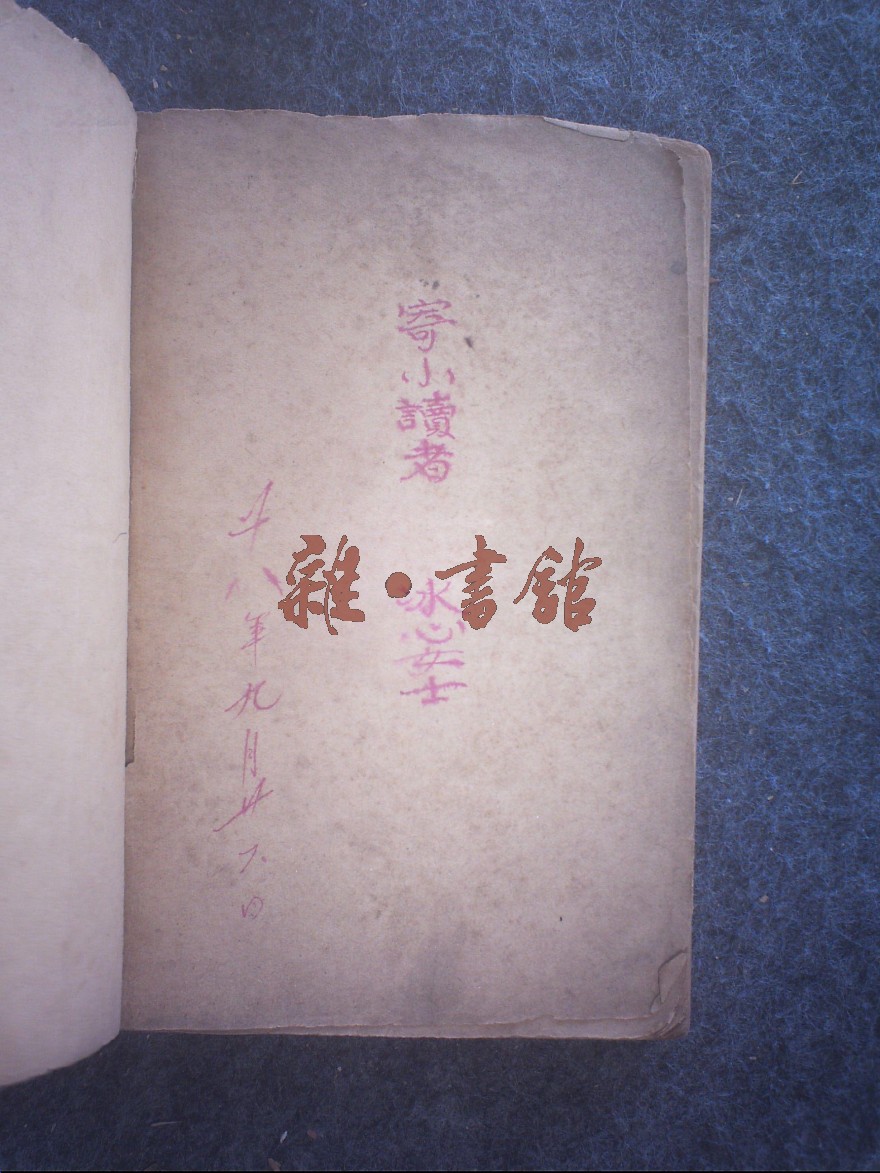 寄小讀者 冰心女士
廿八年九月廿六日
雜·書館